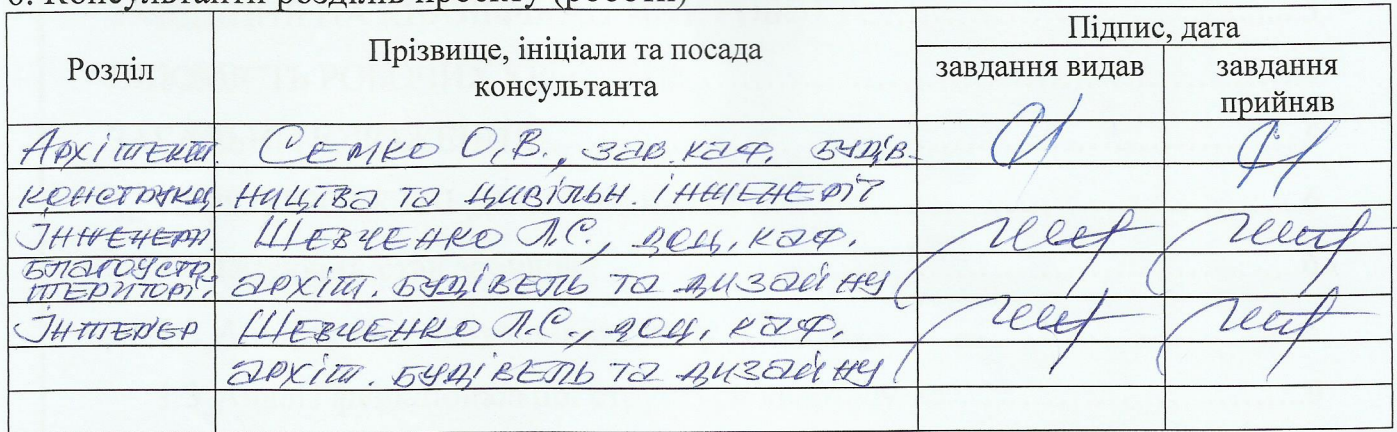 6. Консультанти розділів проєкту (роботи)
Розділ
Прізвище, ініціали та посада
консультанта
Підпис, дата
завдання видав
завдання
прийняв
Архітект. Семко О.В., зав. каф. будів-
конструкц. ництва та цивільн. інженерії
Інженерн. Шевченко Л.С., доц. каф.
благоустр. території архіт. будівель та дизайну
Інтер'єр Шевченко Л.С., доц. каф.
архіт. будівель та дизайну